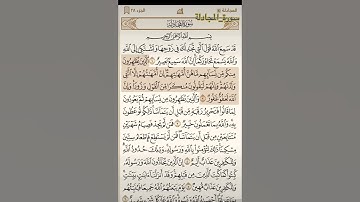 المجادلة
الجزء ٢٨
سورة المجادلة
سُورَةُ المُجَادلَةِ
بِسْمِ اللَّهِ الرَّحْمَٰنِ الرَّحِيمِ
قَدْ سَمِعَ اللَّهُ قَوْلَ الَّتِي تُجَادِلُكَ فِي زَوْجِهَا وَتَشْتَكِي إِلَى
اللَّهِ وَاللَّهُ يَسْمَعُ تَحَاوُرَكُمَا إِنَّ اللَّهَ سَمِيعٌ بَصِيرٌ ١ الَّذِينَ يُظَاهِرُونَ
مِنكُم مِّن نِّسَائِهِم مَّا هُنَّ أُمَّهَاتِهِمْ إِنْ أُمَّهَاتُهُمْ إِلَّا الَّٰئِي
وَلَدْنَهُمْ وَإِنَّهُمْ لَيَقُولُونَ مُنكَرًا مِّنَ الْقَوْلِ وَزُورًا وَإِنَّ
اللَّهَ لَعَفُوٌّ غَفُورٌ ٢ وَالَّذِينَ يُظَاهِرُونَ مِن نِّسَائِهِمْ ثُمَّ يَعُودُونَ
لِمَا قَالُوا فَتَحْرِيرُ رَقَبَةٍ مِّن قَبْلِ أَن يَتَمَاسَّا ذَٰلِكُمْ تُوعَظُونَ
بِهِ وَاللَّهُ بِمَا تَعْمَلُونَ خَبِيرٌ ٣ فَمَن لَّمْ يَجِدْ فَصِيَامُ شَهْرَيْنِ
مُتَتَابِعَيْنِ مِن قَبْلِ أَن يَتَمَاسَّا فَمَن لَّمْ يَسْتَطِعْ فَإِطْعَامُ سِتِّينَ
مِسْكِينًا ذَٰلِكَ لِتُؤْمِنُوا بِاللَّهِ وَرَسُولِهِ وَتِلْكَ حُدُودُ اللَّهِ
وَلِلْكَافِرِينَ عَذَابٌ أَلِيمٌ ٤ إِنَّ الَّذِينَ يُحَادُّونَ اللَّهَ وَرَسُولَهُ
كُبِتُوا كَمَا كُبِتَ الَّذِينَ مِن قَبْلِهِمْ وَقَدْ أَنزَلْنَا آيَاتٍ بَيِّنَاتٍ
وَلِلْكَافِرِينَ عَذَابٌ مُّهِينٌ ٥ يَوْمَ يَبْعَثُهُمُ اللَّهُ جَمِيعًا فَيُنَبِّئُهُم